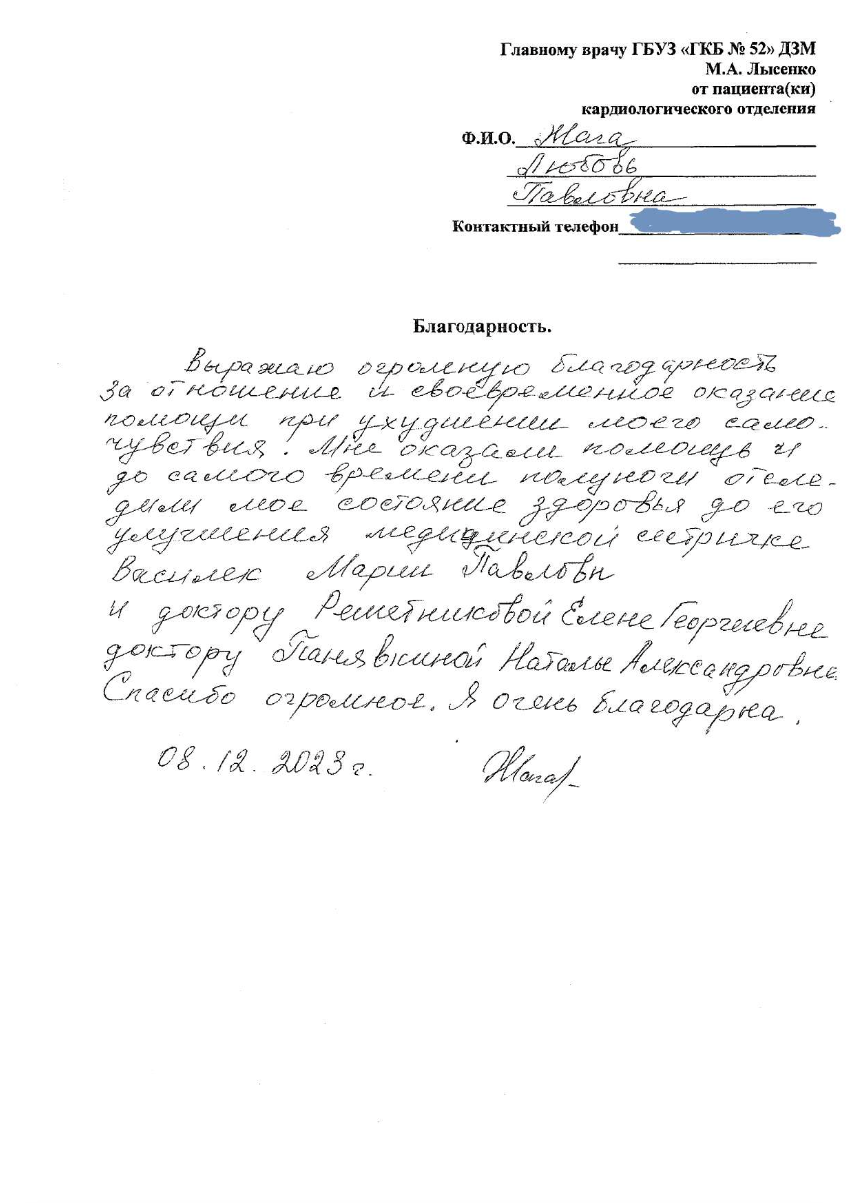 Главному врачу ГБУЗ «ГКБ № 52» ДЗМ
М.А. Лысенко
от пациента(ки)
кардиологического отделения
Ф.И.О. Жага
Любовь
Павловна
Контактный телефон
Благодарность.
Выражаю огромную благодарность
за отношение и своевременное оказание
помощи при ухудшении моего само-
чувствия. Мне оказали помощь и
до самого времени полуночи отсле-
дили мое состояние здоровья до его
улучшения медицинской сестричке
Василек Марии Павловн
и доктору Решетниковой Елене Георгиевне
доктору Панявкиной Наталье Александровне
Спасибо огромное. Я очень благодарна.
08.12.2023 г.